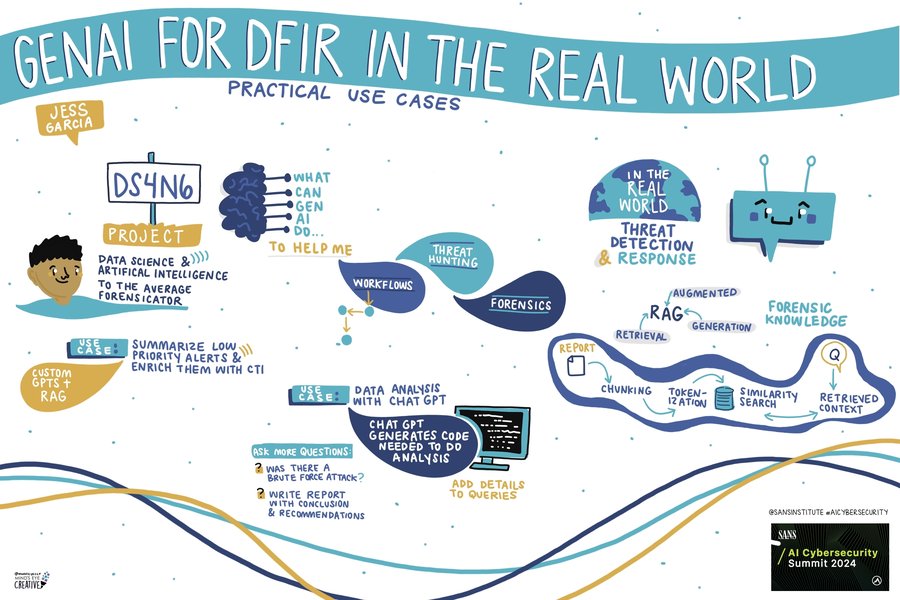 GENAI FOR DFIR IN THE REAL WORLD
PRACTICAL USE CASES
JESS
GARCIA
DS4N6
PROJECT
DATA SCIENCE &
ARTIFICAL INTELLIGENCE
TO THE AVERAGE
FORENSICATOR
WHAT
CAN
GEN
AI
DO...
TO HELP ME
WORKFLOWS
THREAT
HUNTING
FORENSICS
IN THE
REAL
WORLD
THREAT
DETECTION
& RESPONSE
USE
CASE:
SUMMARIZE LOW
PRIORITY ALERTS &
ENRICH THEM WITH CTI
CUSTOM
GPTS +
RAG
USE
CASE:
DATA ANALYSIS
WITH CHAT GPT
CHAT GPT
GENERATES CODE
NEEDED TO DO
ANALYSIS
ASK MORE QUESTIONS:
? WAS THERE A
BRUTE FORCE ATTACK?
? WRITE REPORT
WITH CONCLUSION
& RECOMMENDATIONS
ADD DETAILS
TO QUERIES
AUGMENTED
RAG
RETRIEVAL
GENERATION
FORENSIC
KNOWLEDGE
REPORT
CHUNKING
TOKEN-
IZATION
SIMILARITY
SEARCH
Q
RETRIEVED
CONTEXT
@SANSINSTITUTE #AICYBERSECURITY
SANS
AI Cybersecurity
Summit 2024
MIND'S EYE
CREATIVE